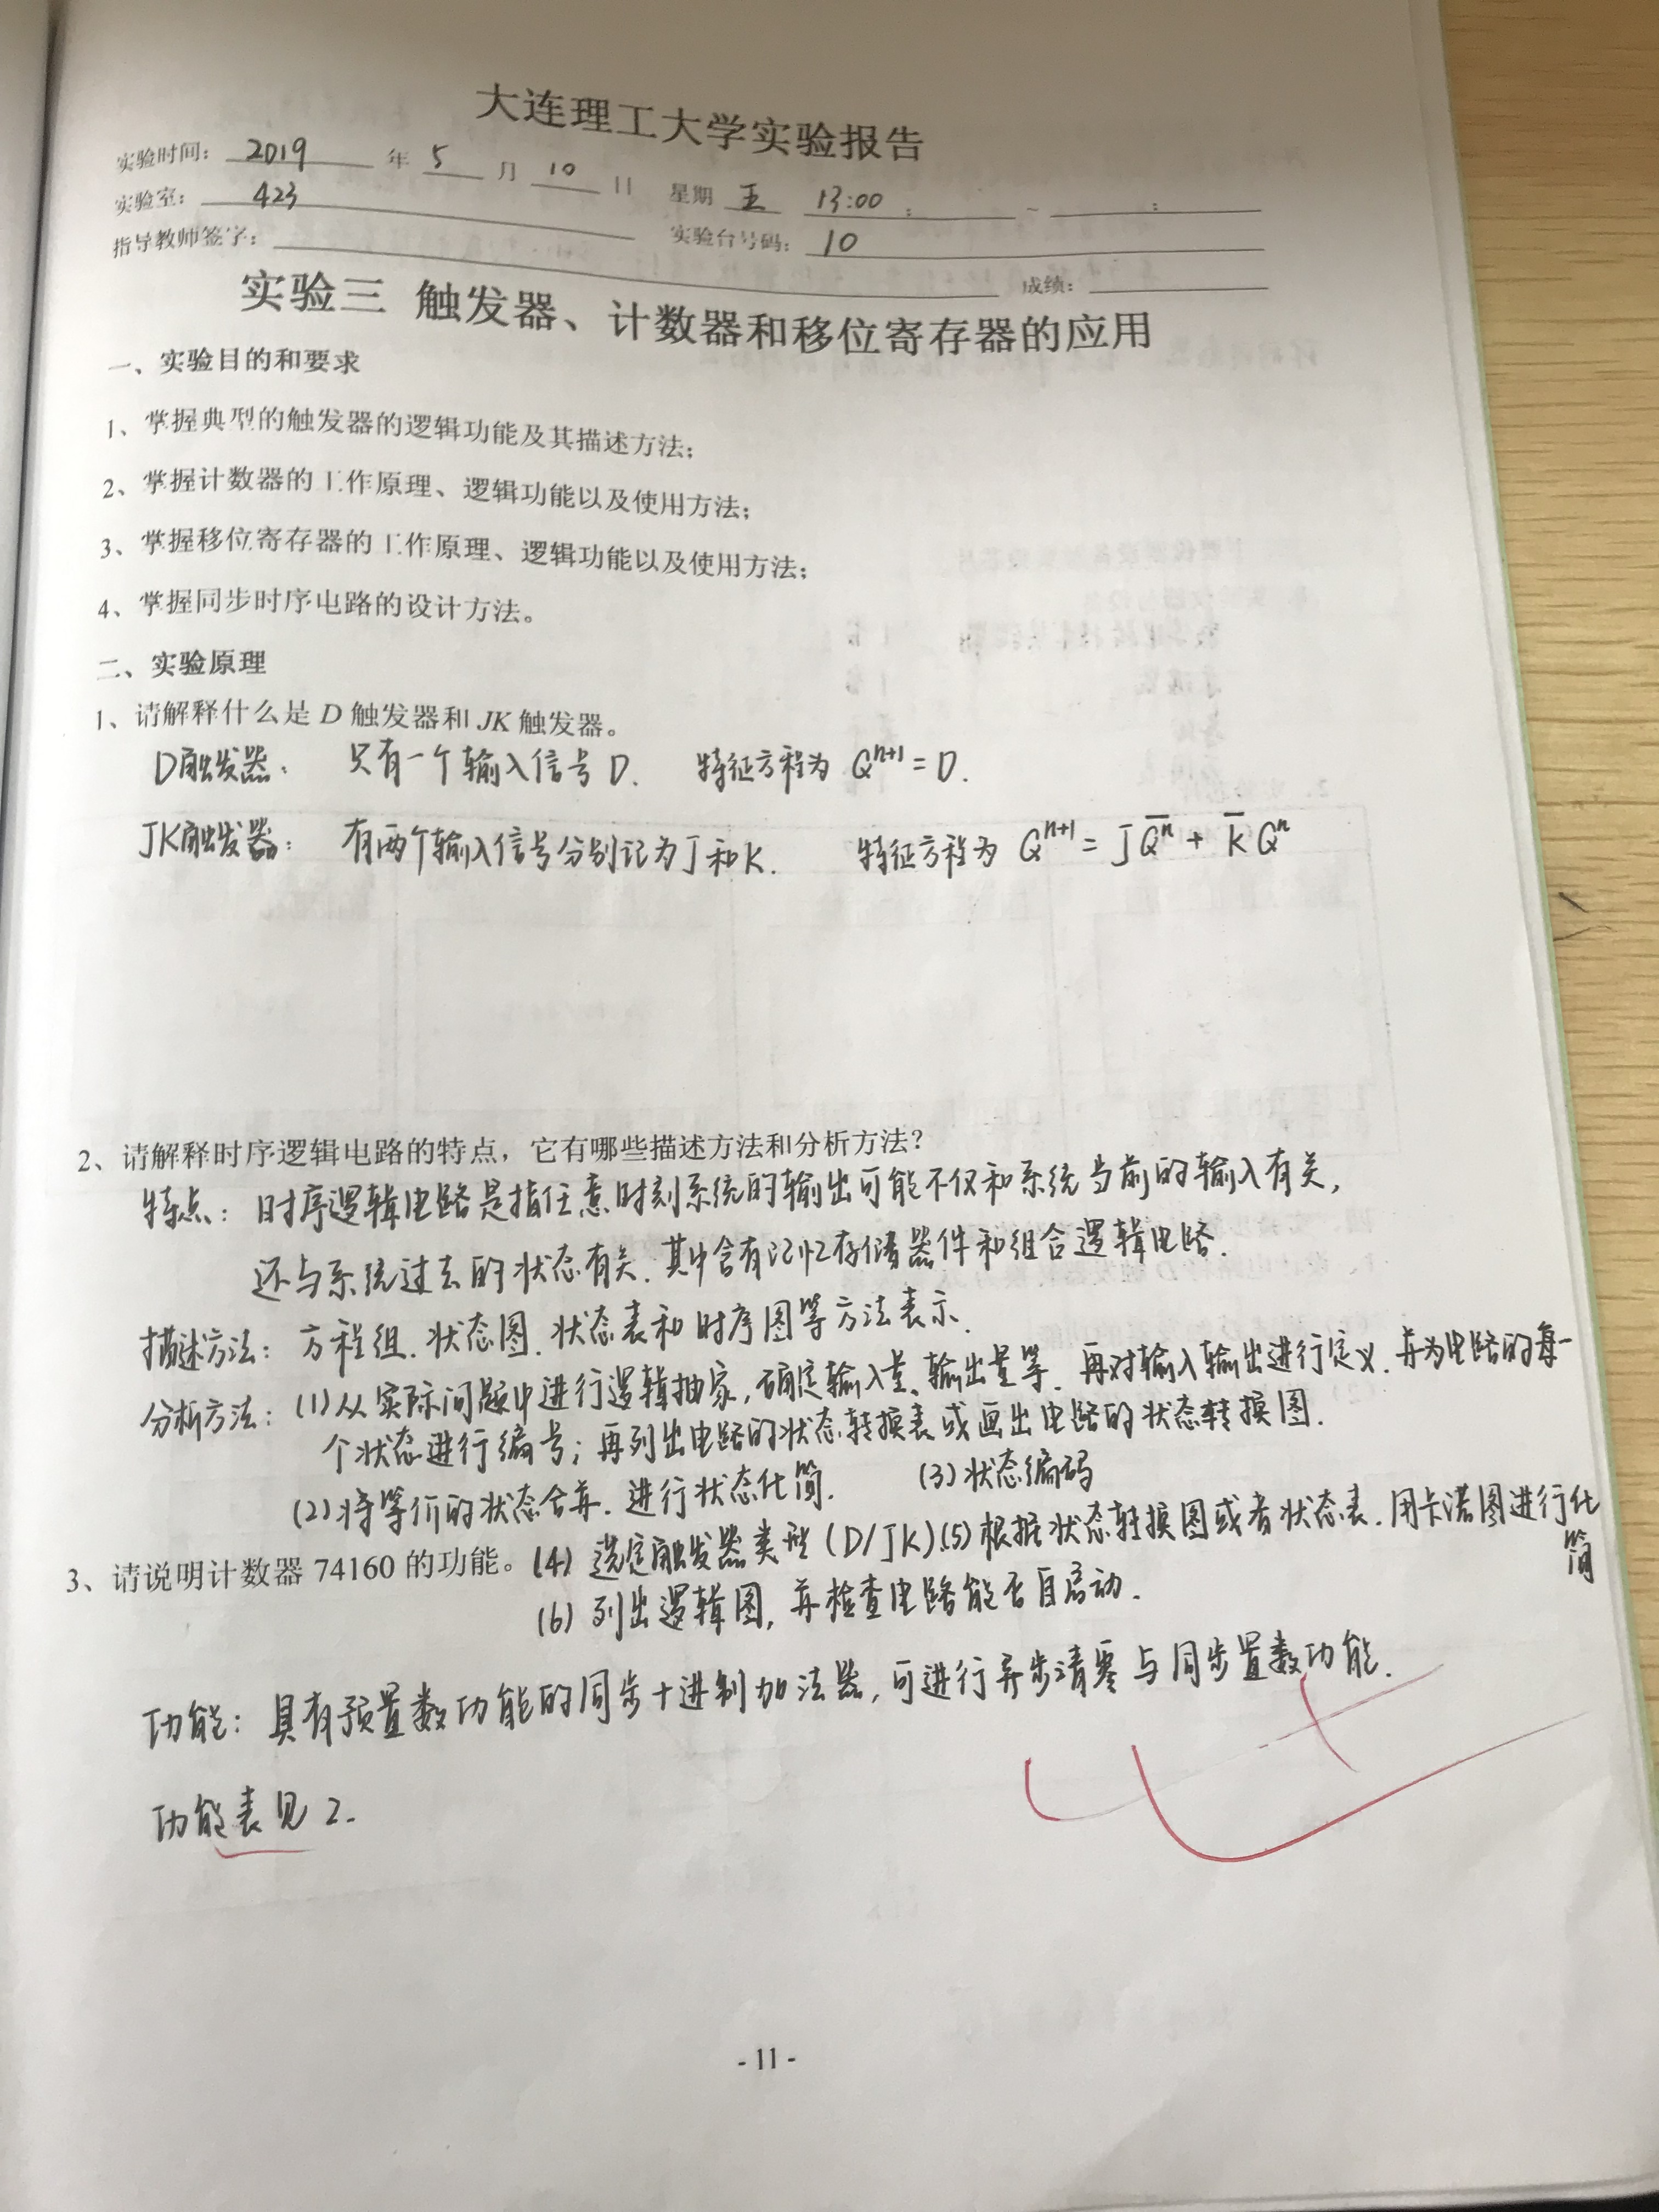 大连理工大学实验报告
实验时间: 2019 年 5 月 10 日 星期 五 13:00 : ~ :
实验室: 423 实验台号码: 10
指导教师签字: 成绩:
实验三 触发器、计数器和移位寄存器的应用
一、实验目的和要求
1、掌握典型的触发器的逻辑功能及其描述方法;
2、掌握计数器的工作原理、逻辑功能以及使用方法;
3、掌握移位寄存器的工作原理、逻辑功能以及使用方法;
4、掌握同步时序电路的设计方法。
二、实验原理
1、请解释什么是 D 触发器和 JK 触发器。
D触发器: 只有一个输入信号D. 特征方程为 Qⁿ⁺¹=D.
JK触发器: 有两个输入信号分别记为J和K. 特征方程为 Qⁿ⁺¹= J Q̅ⁿ + K̅ Qⁿ
2、请解释时序逻辑电路的特点，它有哪些描述方法和分析方法?
特点: 时序逻辑电路是指任意时刻系统的输出可能不仅和系统当前的输入有关,
还与系统过去的状态有关. 其中含有记忆存储器件和组合逻辑电路.
描述方法: 方程组. 状态图. 状态表和时序图等方法表示.
分析方法: (1)从实际问题中进行逻辑抽象, 确定输入量、输出量等. 再对输入输出进行定义. 并为电路的每一
个状态进行编号; 再列出电路的状态转换表或画出电路的状态转换图.
(2)将等价的状态合并. 进行状态化简. (3)状态编码
3、请说明计数器 74160 的功能。 (4) 选定触发器类型 (D/JK).(5) 根据状态转换图或者状态表. 用卡诺图进行化
简
(6) 列出逻辑图, 并检查电路能否自启动.
功能: 具有预置数功能的同步十进制加法器, 可进行异步清零与同步置数功能.
功能表见2.
- 11 -